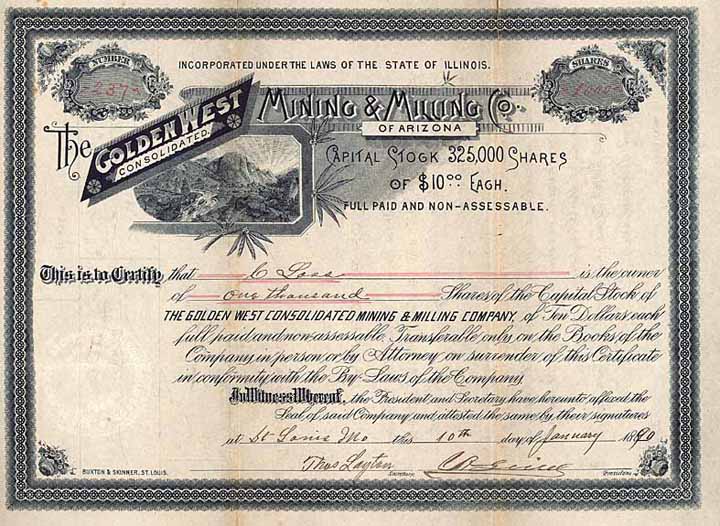 NUMBER
237
INCORPORATED UNDER THE LAWS OF THE STATE OF ILLINOIS.
SHARES
1000
The GOLDEN WEST CONSOLIDATED.
MINING & MILLING CO.
OF ARIZONA
CAPITAL STOCK 325,000 SHARES
OF $10.00 EACH.
FULL PAID AND NON-ASSESSABLE.
This is to Certify that C Loss is the owner
of one thousand Shares of the Capital Stock of
THE GOLDEN WEST CONSOLIDATED MINING & MILLING COMPANY, of Ten Dollars each
full paid and non-assessable, Transferable only on the Books of the
Company in person or by Attorney on surrender of this Certificate
in conformity with the By-Laws of the Company.
In Witness Whereof, the President and Secretary have hereunto affixed the
Seal of said Company and attested the same by their signatures
at St Louis Mo this 10th day of January 1890
Thos Layton Secretary. President.
BUXTON & SKINNER, ST. LOUIS.